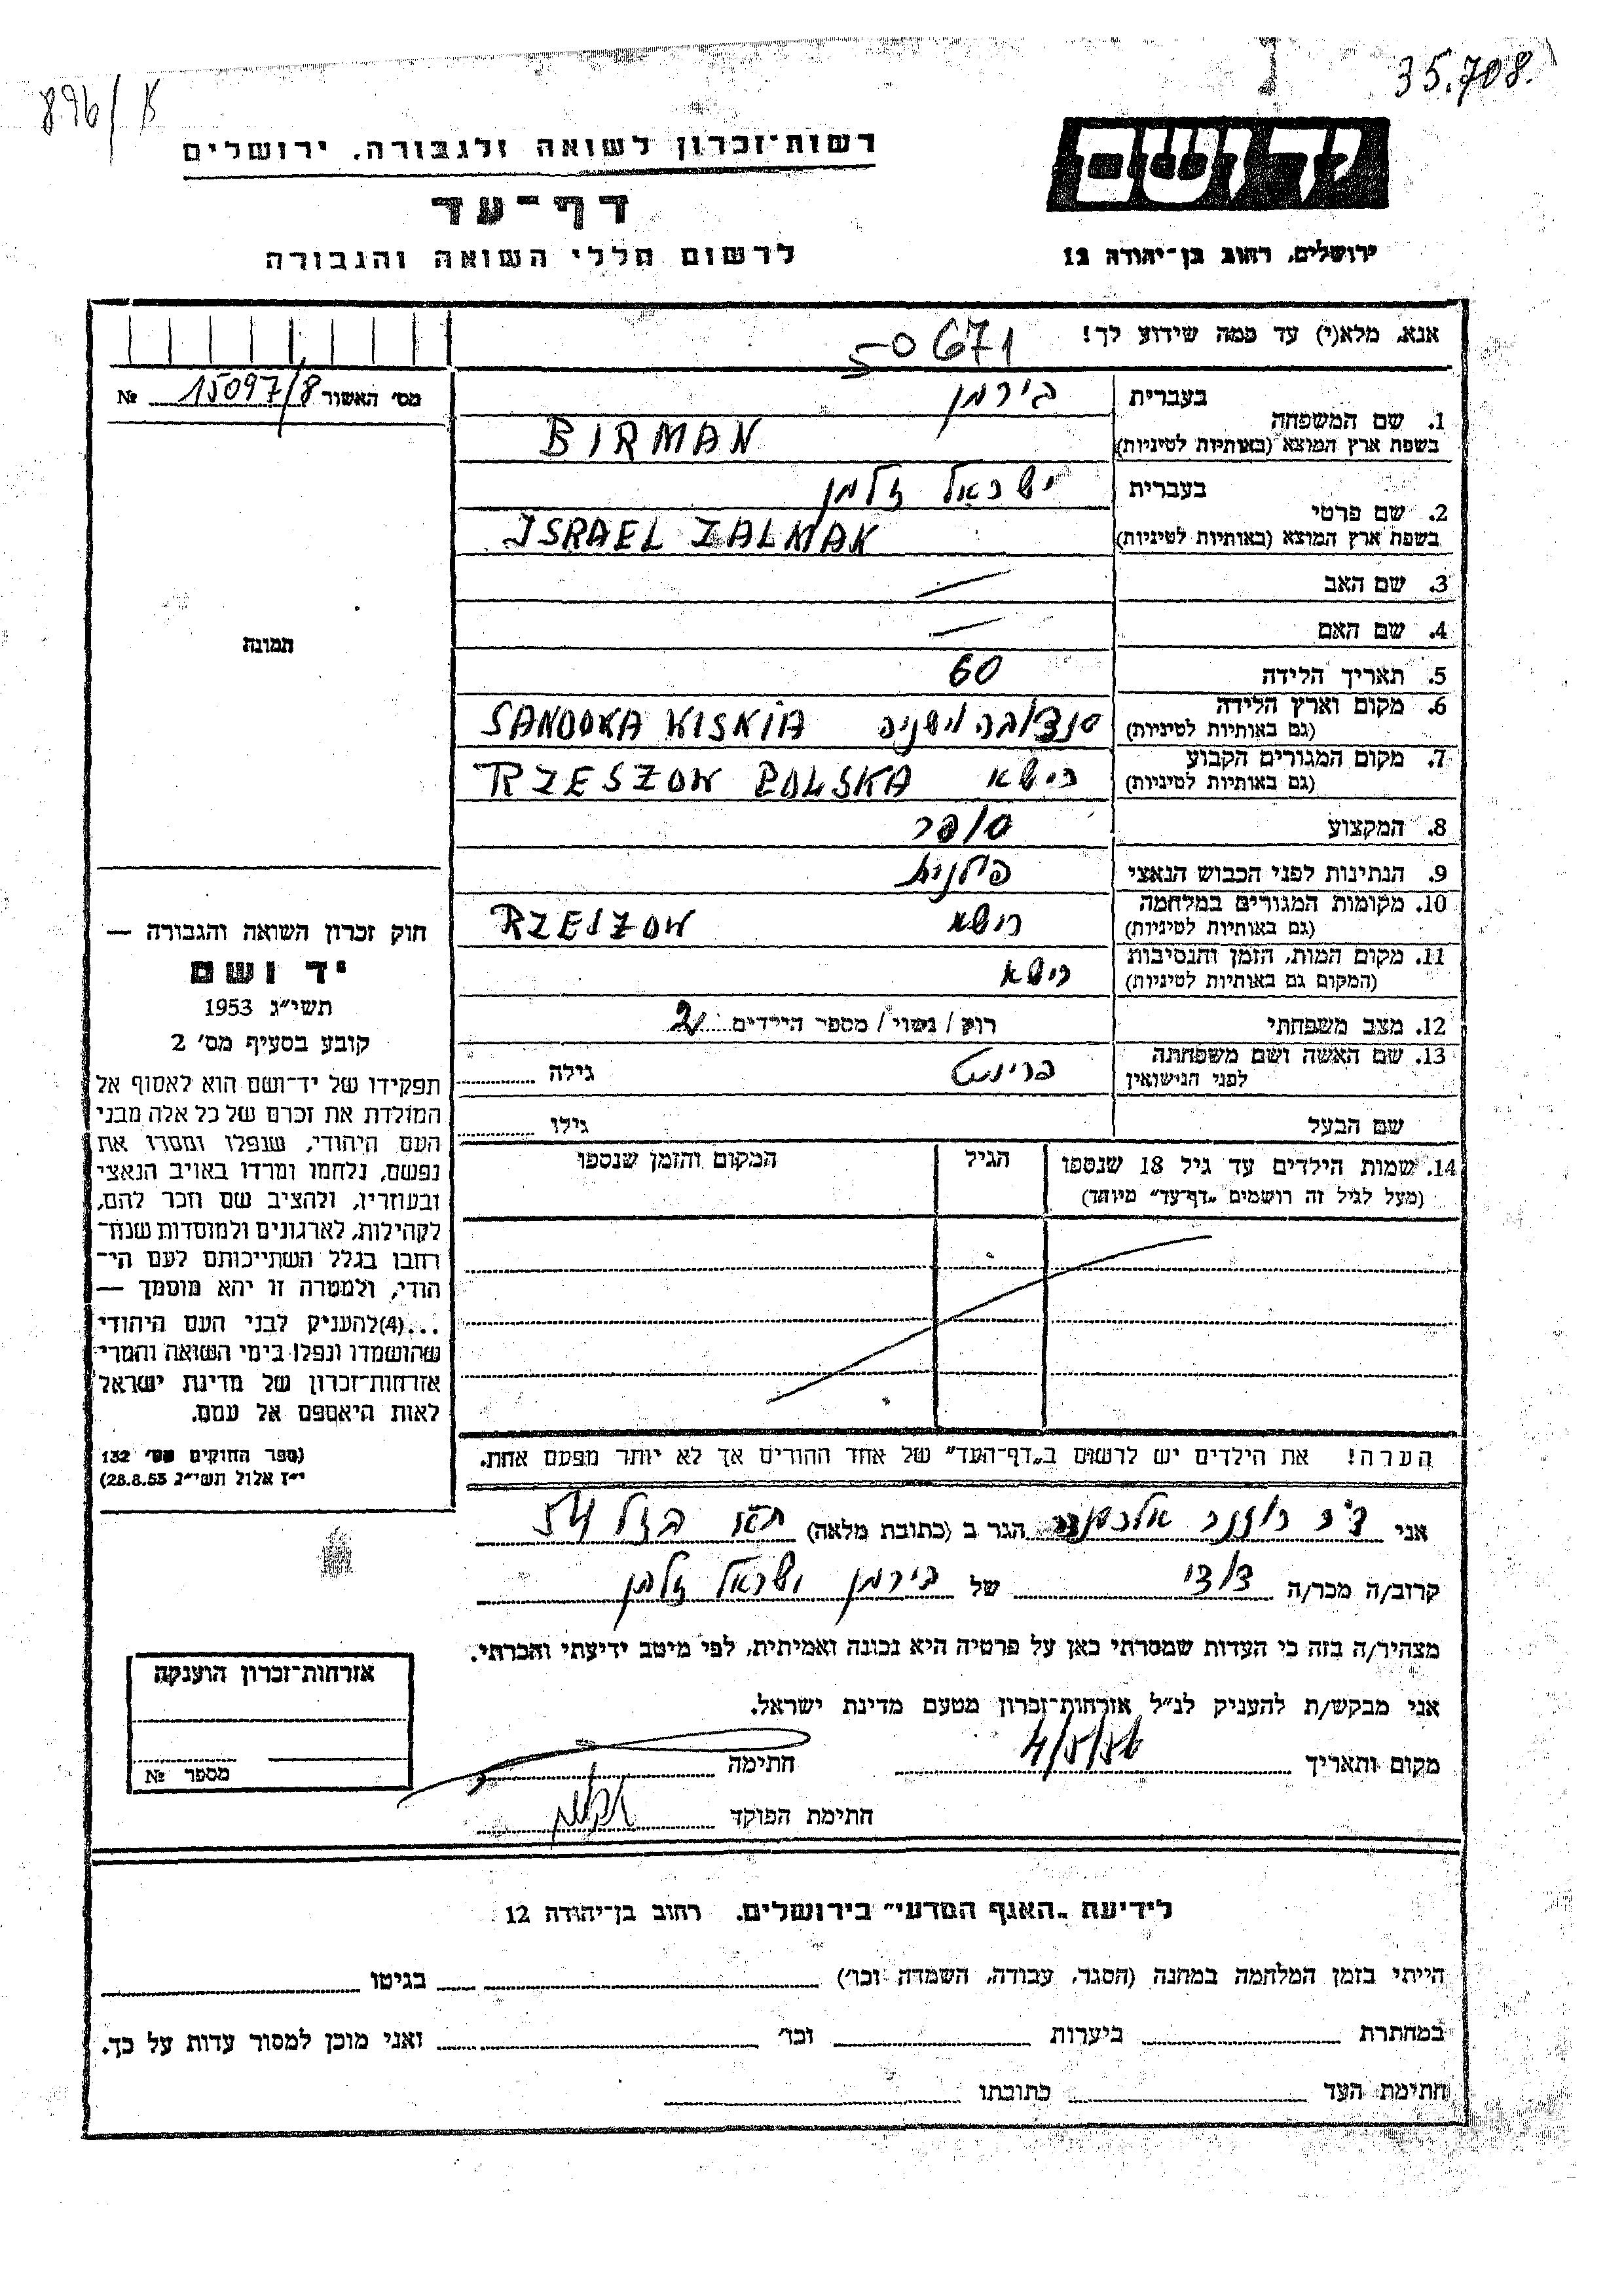 35.708.
896/א
יד ושם
רשות־זכרון לשואה ולגבורה, ירושלים
דף־עד
ירושלים, רחוב בן־יהודה 12
לרשום חללי השואה והגבורה
אנא, מלא(י) עד כמה שידוע לך!
50671
מס׳ האשור 15097/8 №
1. שם המשפחה
בעברית בירמן
בשפת ארץ המוצא (באותיות לטיניות) BIRMAN
2. שם פרטי
בעברית ישראל זלמן
בשפת ארץ המוצא (באותיות לטיניות) ISRAEL ZALMAN
3. שם האב
4. שם האם
תמונה
5. תאריך הלידה 60
6. מקום וארץ הלידה
(גם באותיות לטיניות) סנדובה וישניה SANDOVA WISNIA
7. מקום המגורים הקבוע
(גם באותיות לטיניות) רישא RZESZOW POLSKA
8. המקצוע סופר
9. הנתינות לפני הכבוש הנאצי פולנית
10. מקומות המגורים במלחמה
(גם באותיות לטיניות) רישא RZESZOW
11. מקום המות, הזמן והנסיבות
(המקום גם באותיות לטיניות) רישא
12. מצב משפחתי רוק / נשוי / מספר הילדים 2
13. שם האשה ושם משפחתה
לפני הנישואין גילה
שם הבעל גילו
14. שמות הילדים עד גיל 18 שנספו הגיל המקום והזמן שנספו
(מעל לגיל זה רושמים „דף־עד” מיוחד)
הערה! את הילדים יש לרשום ב„דף־העד” של אחד ההורים אך לא יותר מפעם אחת.
חוק זכרון השואה והגבורה —
יד ושם
תשי״ג 1953
קובע בסעיף מס׳ 2
תפקידו של יד־ושם הוא לאסוף אל
המולדת את זכרם של כל אלה מבני
העם היהודי, שנפלו ומסרו את
נפשם, נלחמו ומרדו באויב הנאצי
ובעוזריו, ולהציב שם וזכר להם,
לקהילות, לארגונים ולמוסדות שנח־
רחבו בגלל השתייכותם לעם הי־
הודי, ולמטרה זו יהא מוסמך —
...(4)להעניק לבני העם היהודי
שהושמדו ונפלו בימי השואה והמרי
אזרחות־זכרון של מדינת ישראל
לאות היאספם אל עמם.
(ספר החוקים מס׳ 132
י״ז אלול תשי״ג 28.8.53)
אני ד״ר אלכסנדר הגר ב (כתובת מלאה) 54
קרוב/ה מכר/ה דודי של בירמן ישראל זלמן
מצהיר/ה בזה כי העדות שמסרתי כאן על פרטיה היא נכונה ואמיתית, לפי מיטב ידיעתי והכרתי.
אני מבקש/ת להעניק לנ״ל אזרחות־זכרון מטעם מדינת ישראל.
מקום ותאריך 4/5/56 חתימה
חתימת הפוקד
אזרחות־זכרון הוענקה
מספר №
לידיעת „האגף המדעי” בירושלים, רחוב בן־יהודה 12
הייתי בזמן המלחמה במחנה (הסגר, עבודה, השמדה וכו׳) בגיטו
במחתרת ביערות וכו׳ ואני מוכן למסור עדות על כך.
חתימת העד כתובתו